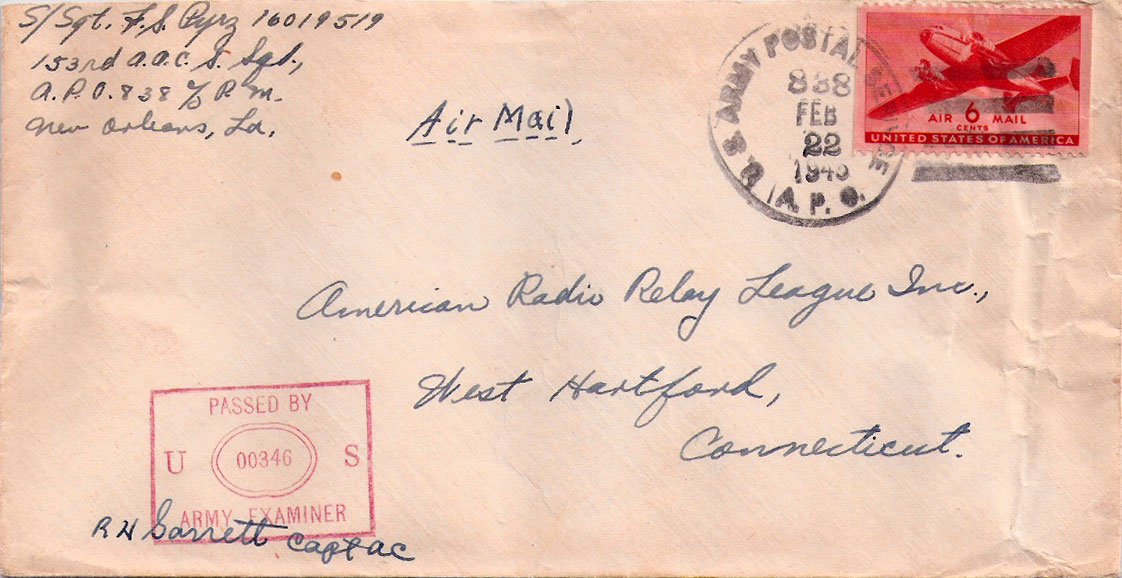 S/Sgt. F.S. Pyrz 16019519
153rd A.A.C.S. Sqd.,
A.P.O. 838 c/o P.M.
New Orleans, La.
Air Mail
U.S. ARMY POSTAL SERVICE
838
FEB
22
A.P.O.
AIR 6 MAIL
CENTS
UNITED STATES OF AMERICA
American Radio Relay League Inc.,
West Hartford,
Connecticut.
PASSED BY
U 00346 S
ARMY EXAMINER
R H Garrett Capt AC